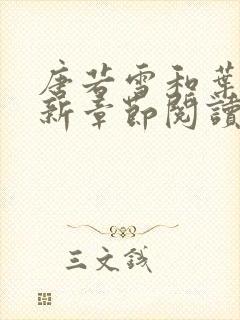 唐若雪和葉
新章節閱讀
三文錢